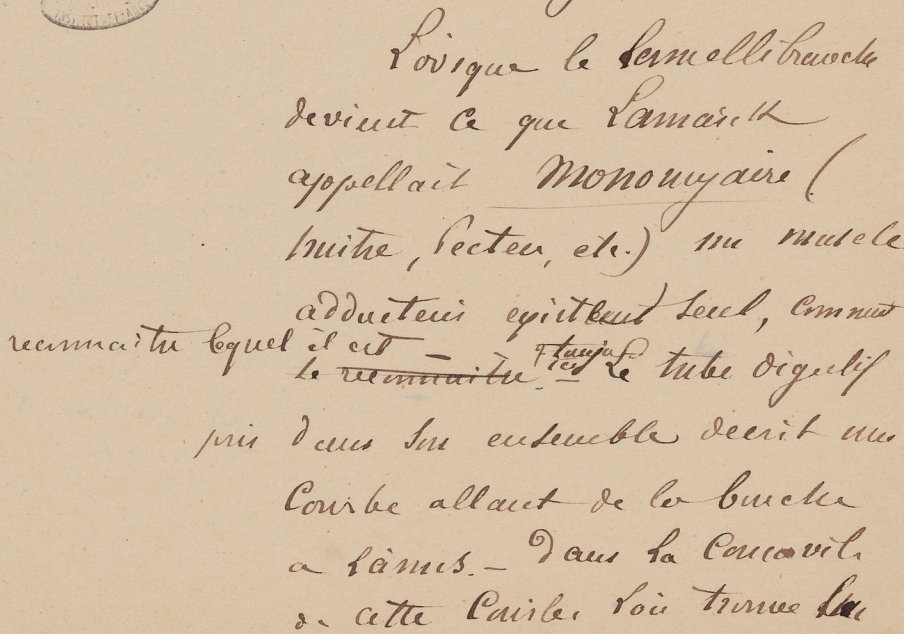 Lorsque le lamellibranche
devient ce que Lamarck
appellait Monomyaire (
huitre, Pecten, etc.) un muscle
adducteur existant seul, comment
reconnaitre lequel il est –
le reconnaitre – le tube digestif
pris dans son ensemble decrit une
Courbe allant de la bouche
a l'anus. – Dans la Concavité
de cette Courbe l'on trouve